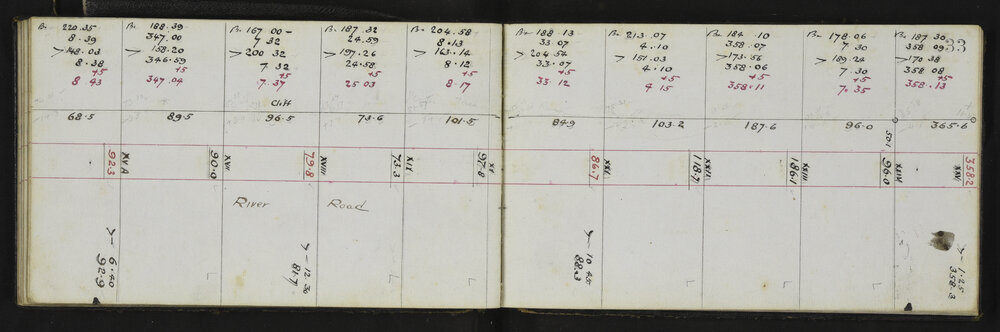 Bn 220.35
8.39
>148.03
8.38
+5
8 43
Bn 188.39
347.00
>158.20
346.59
+5
347.04
Bn 167 00-
7 32
>200 32
7 32
+5
7.37
Cliff
Bn 187.32
24.59
>197.26
24.58
+5
25 03
Bn 204.58
8.13
>163.14
8.12
+5
8.17
Bn 188.13
33.07
>204.54
33.07
+5
33.12
Bn 213.07
4.10
>151.03
4.10
+5
4 15
Bn 184.10
358.07
>173.56
358.06
+5
358.11
Bn 178.06
7.30
>189.24
7.30
+5
7.35
Bn 187 30
358 09
>170 38
358 08
+5
358.13
33
68.5
89.5
96.5
73.6
101.5
84.9
103.2
187.6
96.0
50.1
365.6
92.3
XV A
90.0
XVII
79.8
XVIII
73.3
XIX
97.8
XX
86.7
XXI
118.7
XXII
186.1
XXIII
96.0
XXIV
358.2
XXV
River Road
>- 6.40
92.9
>- 12.30
81.7
>- 10 45
88.3
>- 1.25
358.3